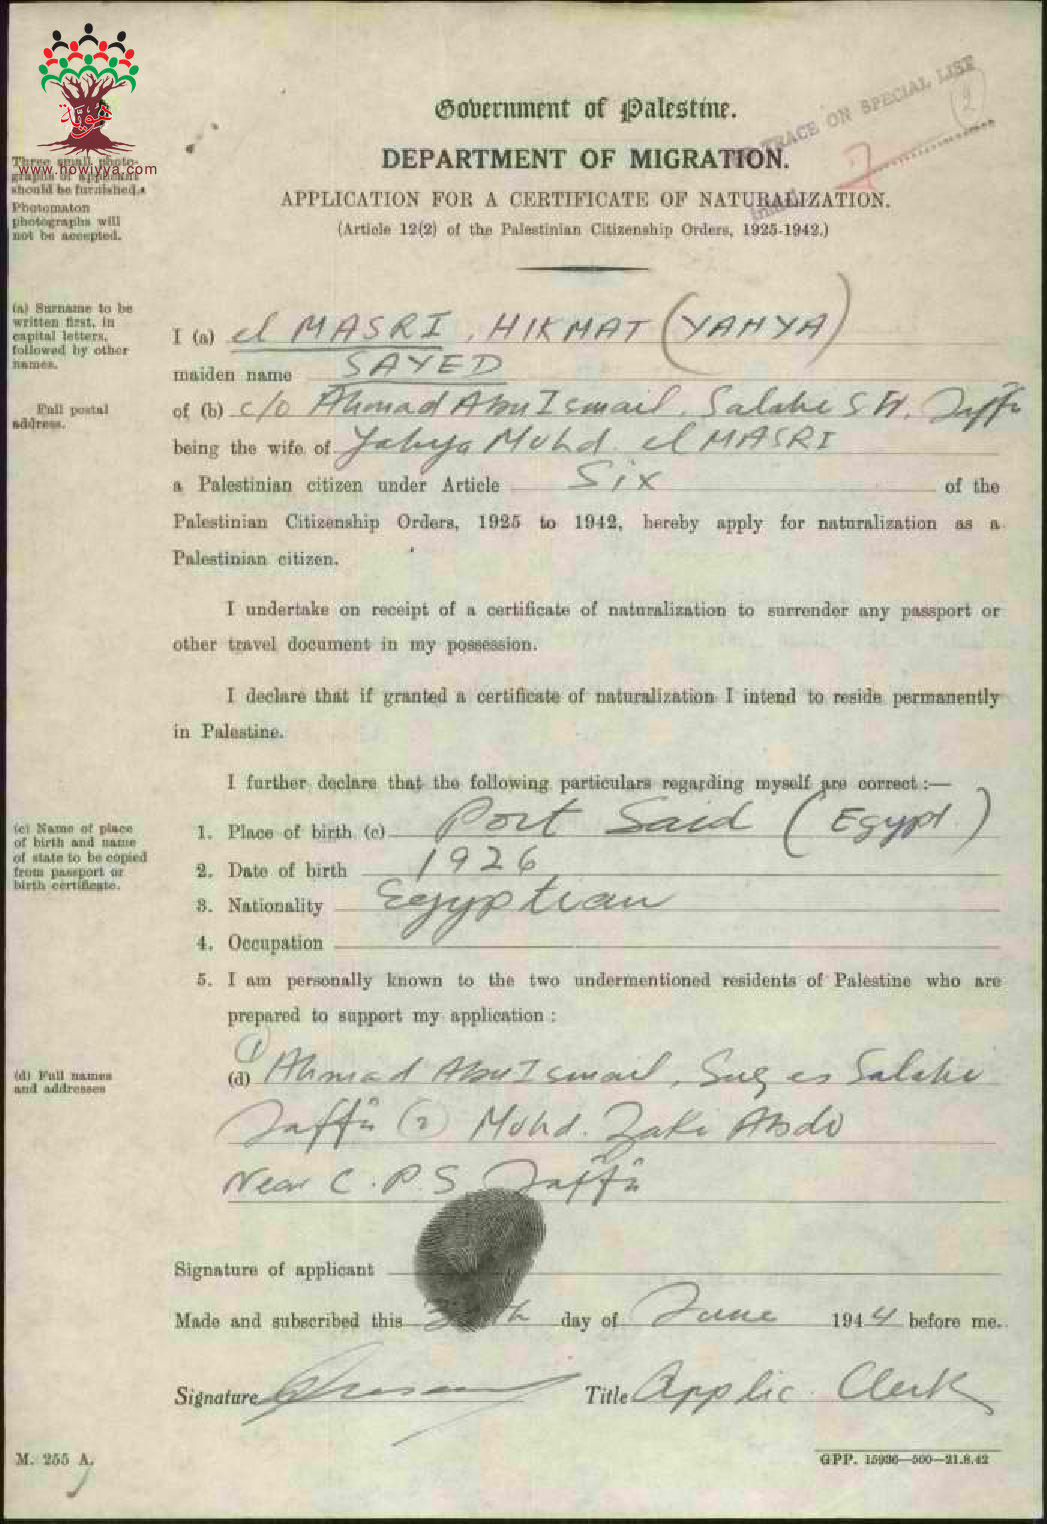 هوية
www.howiyya.com
Government of Palestine.
DEPARTMENT OF MIGRATION.
APPLICATION FOR A CERTIFICATE OF NATURALIZATION.
(Article 12(2) of the Palestinian Citizenship Orders, 1925-1942.)
TRACE ON SPECIAL LIST
Three small photo-
graphs of applicant
should be furnished.
Photomaton
photographs will
not be accepted.
(a) Surname to be
written first, in
capital letters,
followed by other
names.
I (a) el MASRI, HIKMAT (YAHYA)
maiden name SAYED
Full postal
address.
of (b) c/o Ahmad Abu Ismail, Salahi St, Jaffa
being the wife of Yahya Muhd. el MASRI
a Palestinian citizen under Article Six of the
Palestinian Citizenship Orders, 1925 to 1942, hereby apply for naturalization as a
Palestinian citizen.
I undertake on receipt of a certificate of naturalization to surrender any passport or
other travel document in my possession.
I declare that if granted a certificate of naturalization I intend to reside permanently
in Palestine.
I further declare that the following particulars regarding myself are correct :—
(c) Name of place
of birth and name
of state to be copied
from passport or
birth certificate.
1. Place of birth (c) Port Said (Egypt)
2. Date of birth 1926
3. Nationality Egyptian
4. Occupation
5. I am personally known to the two undermentioned residents of Palestine who are
prepared to support my application :
(d) Full names
and addresses
(1)
(d) Ahmad Abu Ismail, Suq es Salahi
Jaffa (2) Muhd. Zaki Abdo
Near C.P.S Jaffa
Signature of applicant
Made and subscribed this day of June 1944 before me.
Signature Title Applic. Clerk
M. 255 A.
GPP. 15936—500—21.8.42